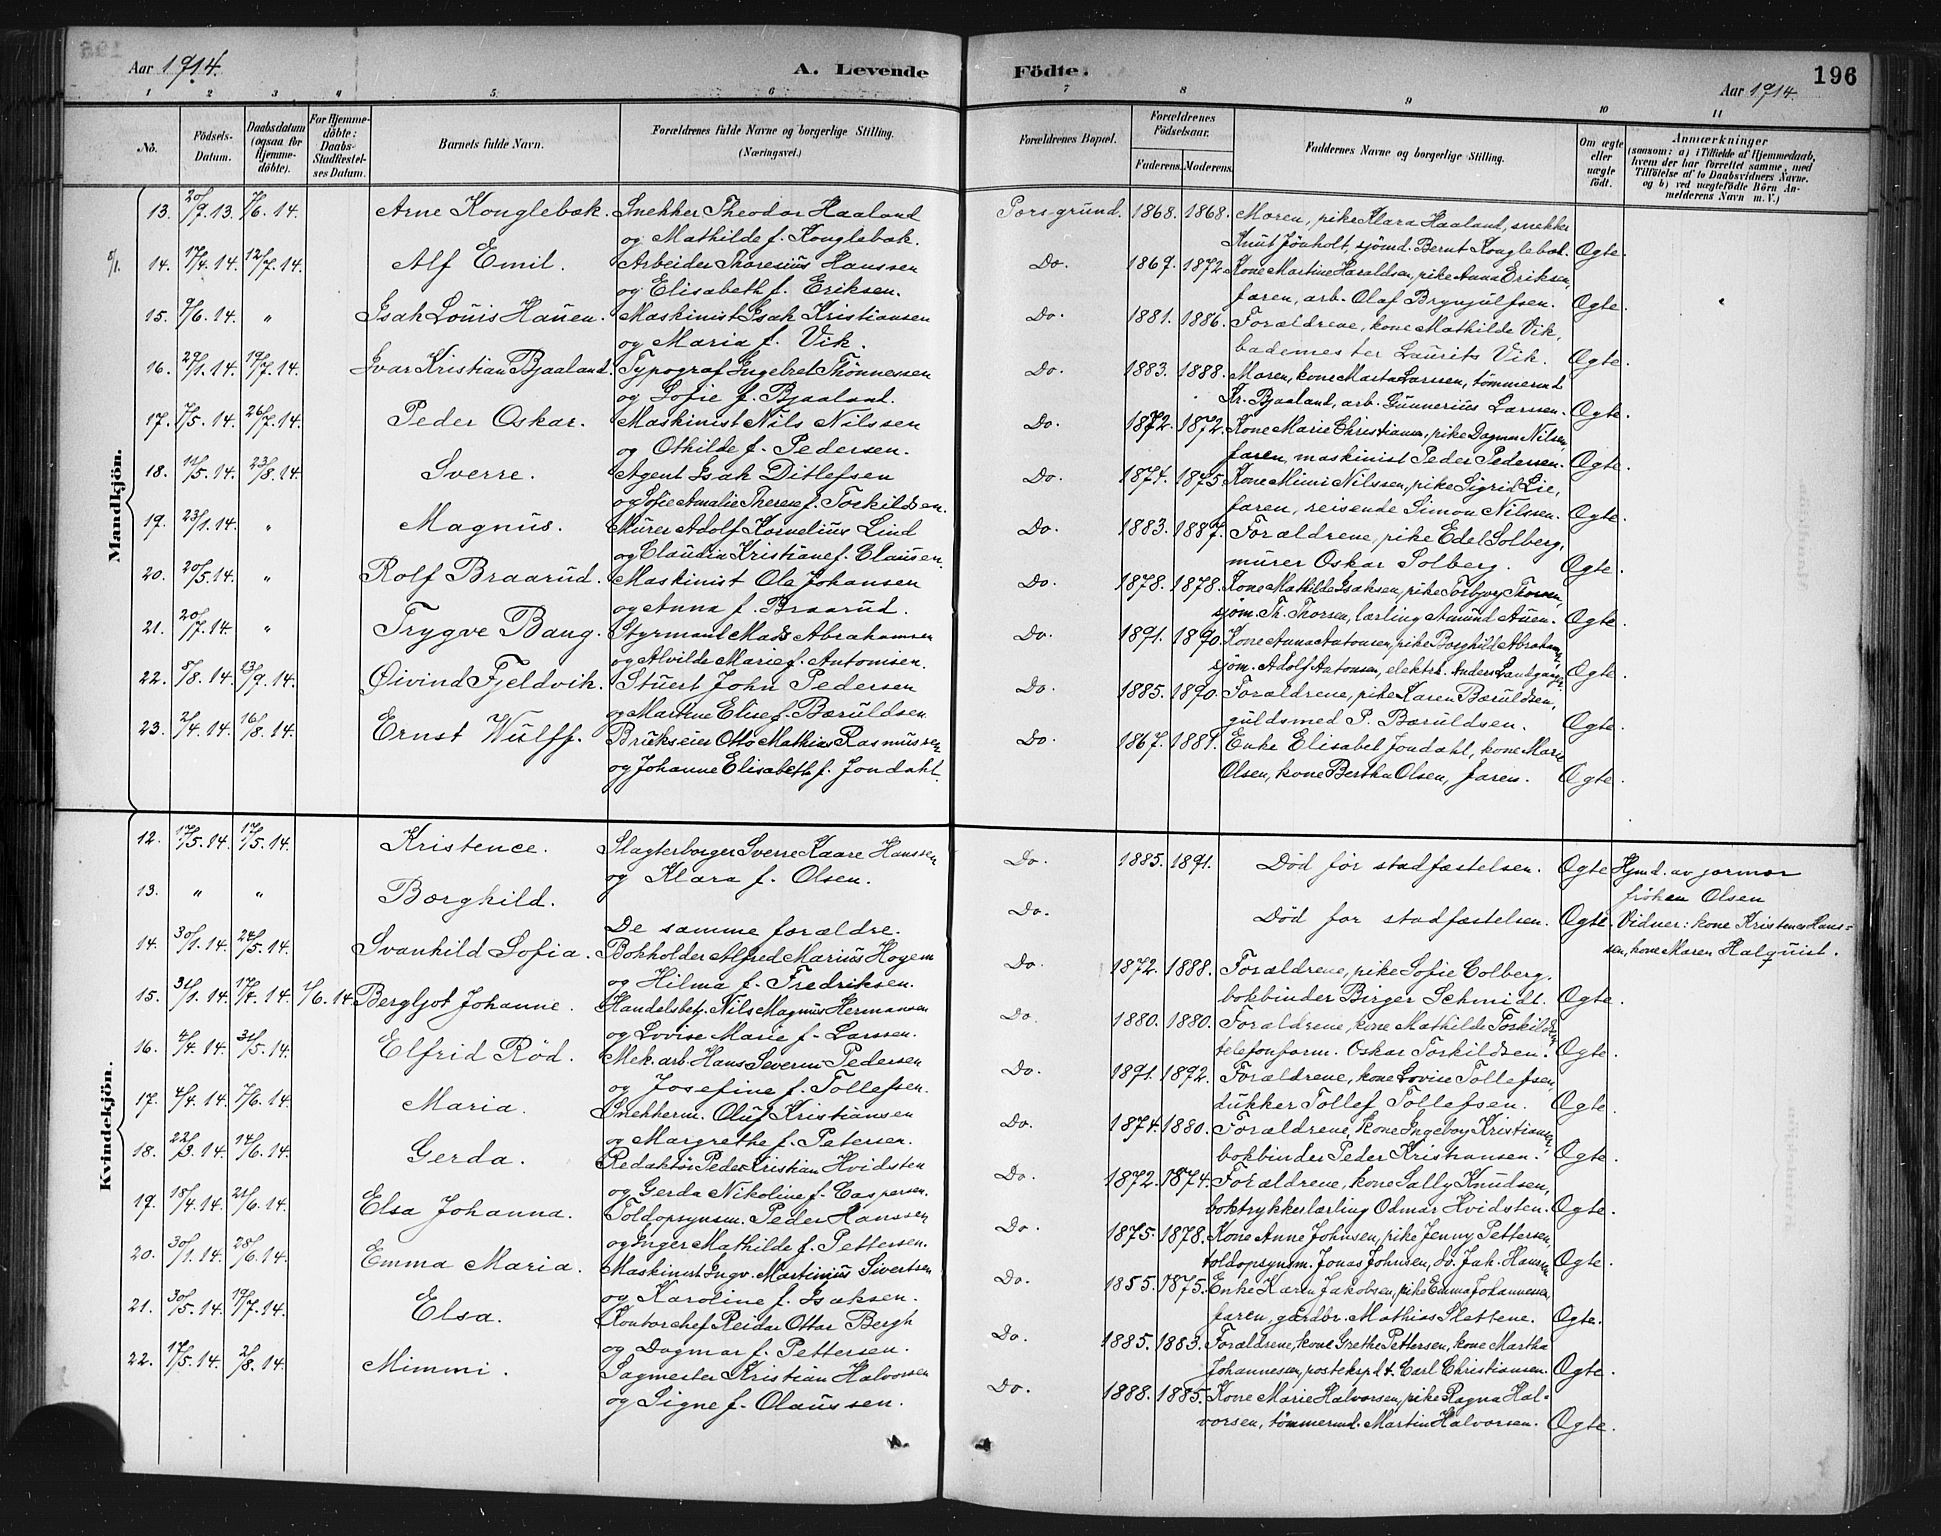 Aar 1914.
A. Levende
Födte.
Aar 1914.
196
1 2 3 4 5 6 7 8 9 10 11
No.
Födsels-Datum.
Daabsdatum (ogsaa for Hjemme-döbte).
For Hjemme-döbte: Daabs-Stadfæstel-ses Datum.
Barnets fulde Navn.
Forældrenes fulde Navne og borgerlige Stilling. (Næringsvei.)
Forældrenes Bopæl.
Forældrenes Födselsaar.
Faderens. Moderens.
Faddernes Navne og borgerlige Stilling.
Om ægte eller uægte födt.
Anmærkninger (saasom: a) i Tilfælde af Hjemmedaab, hvem der har forrettet samme, med Tilföielse af to Daabsvidners Navne. og b) ved uægtefödte Börn An-melderens Navn m. V.)
Mandkjön.
13. 20/9.13. 7/6.14. Arne Konglebæk. Snekker Theodor Haaland Porsgrund. 1868. 1868. Moren, pike Klara Haaland, snekker
og Mathilde f. Konglebæk. Knut Jönholt, sjömd. Bernt Konglebæk. Ægte.
8/1. 14. 17/4.14. 12/7.14. Alf Emil. Arbeider Thoresius Hanssen Do. 1867. 1872. Kone Martine Haraldsen, pike Anna Eriksen,
og Elisabeth f. Eriksen. faren, arb. Olaf Brynjulfsen. Ægte.
15. 9/6.14. " Isak Louis Hauen. Maskinist Isak Kristiansen Do. 1881. 1886. Forældrene, kone Mathilde Vik,
og Maria f. Vik. bademester Laurits Vik. Ægte.
16. 27/1.14. 19/7.14. Ivar Kristian Bjaaland. Typograf Ingebret Thönnessen Do. 1883. 1888. Moren, kone Marta Larssen, tömmermd
og Sofie f. Bjaaland. Kr. Bjaaland, arb. Gunnerius Larssen. Ægte.
17. 7/5.14. 26/7.14. Peder Oskar. Maskinist Nils Nilssen Do. 1872. 1872. Kone Marie Christiansen, pike Dagmar Nilsen,
og Othilde f. Pedersen. faren, maskinist Peder Pedersen. Ægte.
18. 11/5.14. 23/8.14. Sverre. Agent Isak Ditlefsen Do. 1874. 1875. Kone Mimi Nilssen, pike Sigrid Lie,
og Sofie Amalie Therese f. Torkildsen. faren, reisende Simon Nilssen. Ægte.
19. 23/1.14. " Magnus. Murer Adolf Kornelius Lind Do. 1883. 1887. Forældrene, pike Edel Solberg,
og Claudia Kristiane f. Clausen. murer Oskar Solberg. Ægte.
20. 20/5.14. " Rolf Braarud. Maskinist Ole Johansen Do. 1878. 1878. Kone Mathilde Isaksen, pike Torbjørg Thorsen,
og Anna f. Braarud. sjöm. Th. Thorsen, lærling Amund Auen. Ægte.
21. 20/7.14. " Trygve Bang. Styrmand Mads Abrahamsen Do. 1891. 1890. Kone Anna Antonsen, pike Borghild Abrahams.,
og Alvilde Marie f. Antonisen. sjöm. Adolf Antonsen, elektrk. Anders Landgangs. Ægte.
22. 8/8.14. 13/9.14. Øivind Fjeldvik. Stuert John Pedersen Do. 1885. 1890. Forældrene, pike Karen Bæruldsen,
og Martine Elise f. Bæruldsen. guldsmed P. Bæruldsen. Ægte.
23. 2/4.14. 16/8.14. Ernst Wulff. Brukseier Otto Mathias Rasmussen Do. 1867. 1881. Enke Elisabet Jondahl, kone Marie
og Johanne Elisabeth f. Jondahl. Olsen, kone Bertha Olsen, faren. Ægte.
Kvindekjön.
12. 17/5.14. 17/5.14. Kristence. Slagterborger Sverre Kaare Hanssen Do. 1885. 1891. Död för stadfæstelsen. Ægte. Hjmd. av jormor
og Klara f. Olsen. fröken Olsen
13. " " Borghild. De samme forældre. Do. Död før stadfæstelsen. Ægte. Vidner: kone Kristence Hans-
sen, kone Maren Halquist.
14. 30/1.14. 24/5.14. Svanhild Sofia. Bokholder Alfred Marius Hogem Do. 1872. 1888. Forældrene, pike Sofie Colberg.
og Hilma f. Fredriksen. bokbinder Birger Schmidt. Ægte.
15. 31/1.14. 17/4.14. 1/6.14. Bergljot Johanne. Handelsbetj. Nils Magnus Hermansen Do. 1880. 1880. Forældrene, kone Mathilde Torkildsen
og Lovise Marie f. Larssen. telefonform. Oskar Torkildsen. Ægte.
16. 4/4.14. 31/5.14. Elfrid Röd. Mek. arb. Hans Severin Pedersen Do. 1891. 1892. Forældrene, kone Lovise Tollefsen,
og Josefine f. Tollefsen. dukker Tollef Tollefsen. Ægte.
17. 4/4.14. 7/6.14. Maria. Snekkerm. Oluf Kristiansen Do. 1874. 1880. Forældrene, kone Ingeborg Kristiansen,
og Margrethe f. Petersen. bokbinder Peder Kristiansen. Ægte.
18. 22/3.14. 14/6.14. Gerda. Redaktör Peder Kristian Hvidsten Do. 1872. 1874. Forældrene, kone Sally Knudsen,
og Gerda Nikoline f. Caspersen. boktrykkerlærling Odmar Hvidsten. Ægte.
19. 18/4.14. 21/6.14. Elsa Johanna. Toldopsynsm. Peder Hanssen Do. 1875. 1878. Kone Anne Johnsen, pike Jenny Pettersen,
og Inger Mathilde f. Pettersen. toldopsynsm. Jonas Johnsen, do. Jak. Hansen. Ægte.
20. 30/1.14. 28/6.14. Emma Maria. Maskinist Ingv. Martinius Sivertsen Do. 1855. 1875. Enke Karen Jakobsen, pike Emma Johannessen,
og Karoline f. Isaksen. faren, gårdbr. Mathias Slettene. Ægte.
21. 30/5.14. 19/7.14. Elsa. Kontorchef Reidar Ottar Bergh Do. 1885. 1883. Forældrene, kone Grethe Pettersen, kone Martha
og Dagmar f. Pettersen. Johannesen, postekspdt. Carl Christiansen. Ægte.
22. 17/5.14. 2/8.14. Mimmi. Sagmester Kristian Halvorsen Do. 1888. 1885. Kone Marie Halvorsen, pike Ragna Hal-
og Signe f. Olaussen. vorsen, tömmermd. Martin Halvorsen. Ægte.